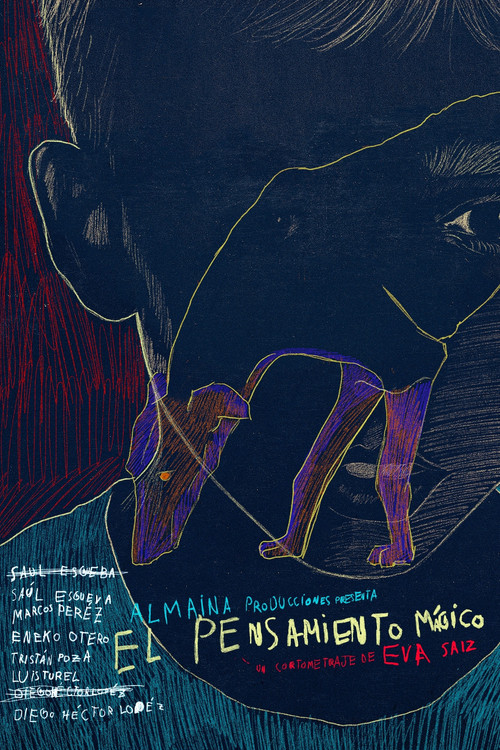 SAUL ESGUEBA
SAÚL ESGUEVA
MARCOS PERÉZ
ENEKO OTERO
TRISTÁN POZA
LUISTUREL
DIEGO HÉCTOR LOPÉZ
ALMAINA PRODUCCIONES PRESENTA
EL PENSAMIENTO MÁGICO
UN CORTOMETRAJE DE EVA SAIZ